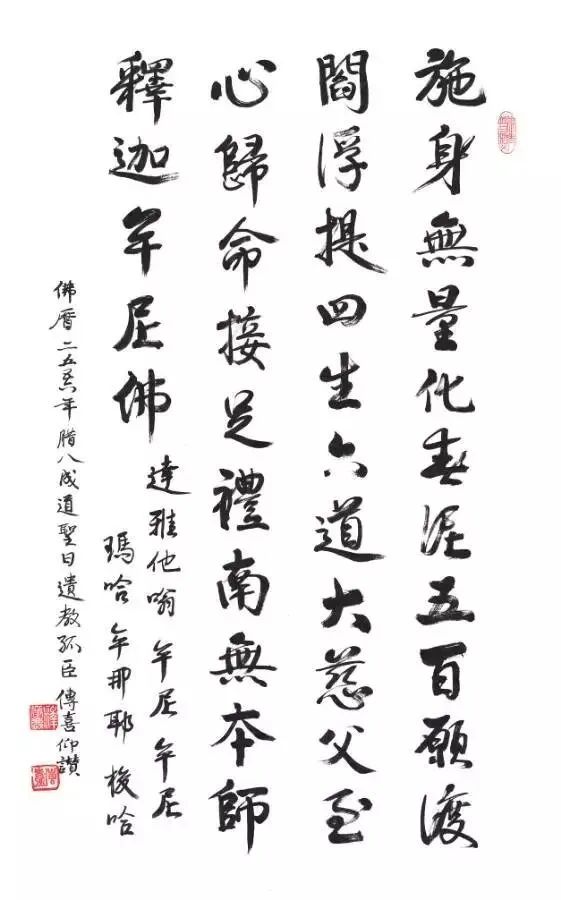 施身無量化春泥五百願渡
閻浮提四生六道大慈父至
心歸命接足禮南無本師
釋迦牟尼佛
達雅他嗡 牟尼牟尼
瑪哈 牟那耶 梭哈
佛曆二五年臘八成道聖日遺教孤臣傳喜仰讚